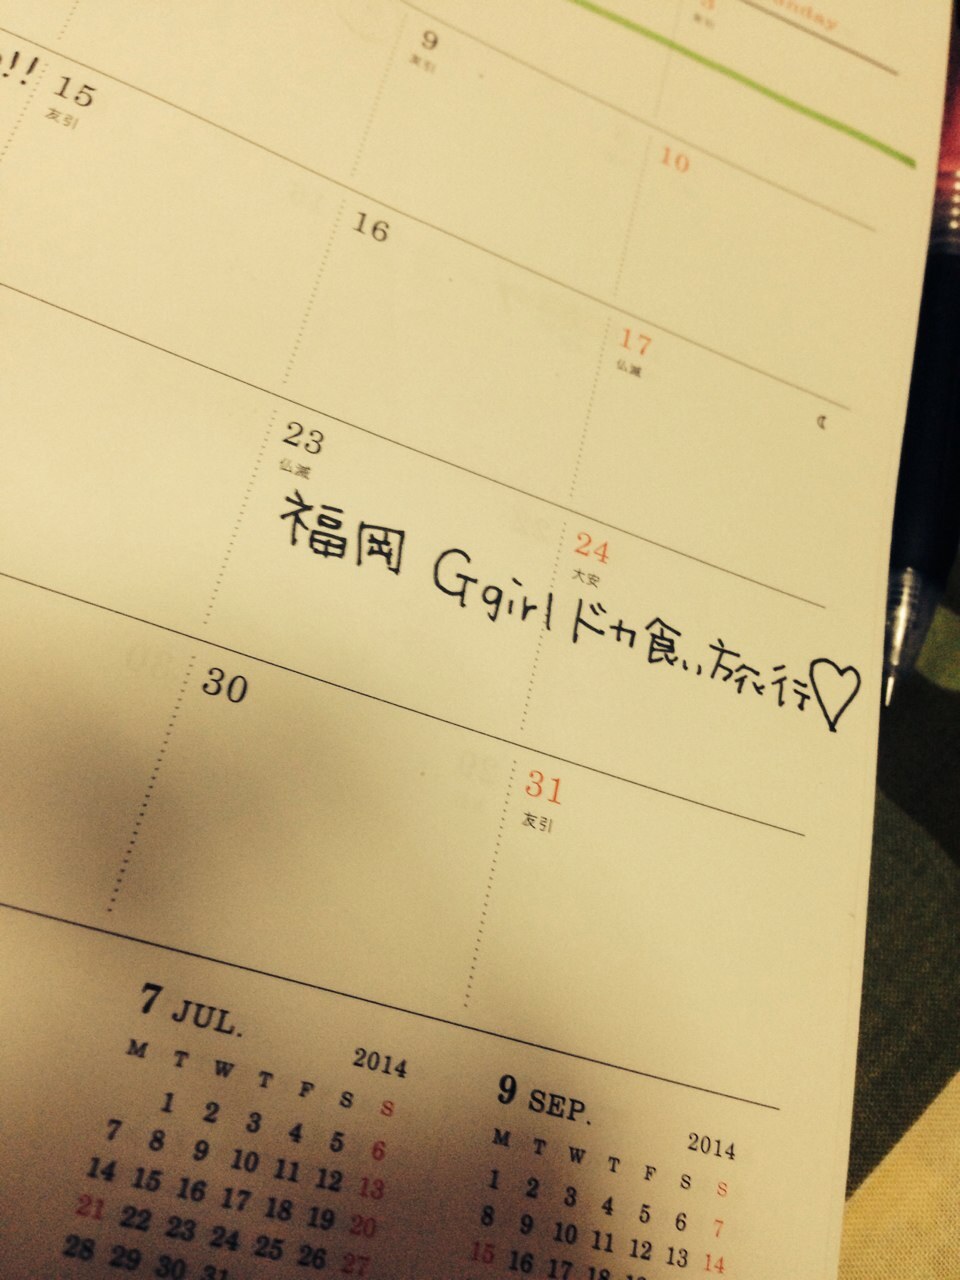 3
9
友引
10
!!
15
友引
16
17
仏滅
23
仏滅
24
大安
福岡 Ggirl ドカ食い旅行♡
30
31
友引
7 JUL.
2014
M T W T F S S
1 2 3 4 5 6
7 8 9 10 11 12 13
14 15 16 17 18 19 20
21 22 23 24 25 26 27
28 29 30 31
9 SEP.
2014
M T W T F S S
1 2 3 4 5 6 7
8 9 10 11 12 13 14
15 16 17 18 19